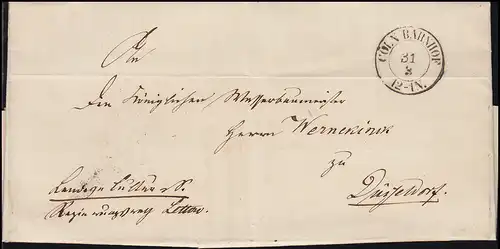 CÖLN BAHNHOF
31
3
12-1N.
An
Den Königlichen Wasserbaumeister
Herrn Wernekink
zu
Düsseldorf.